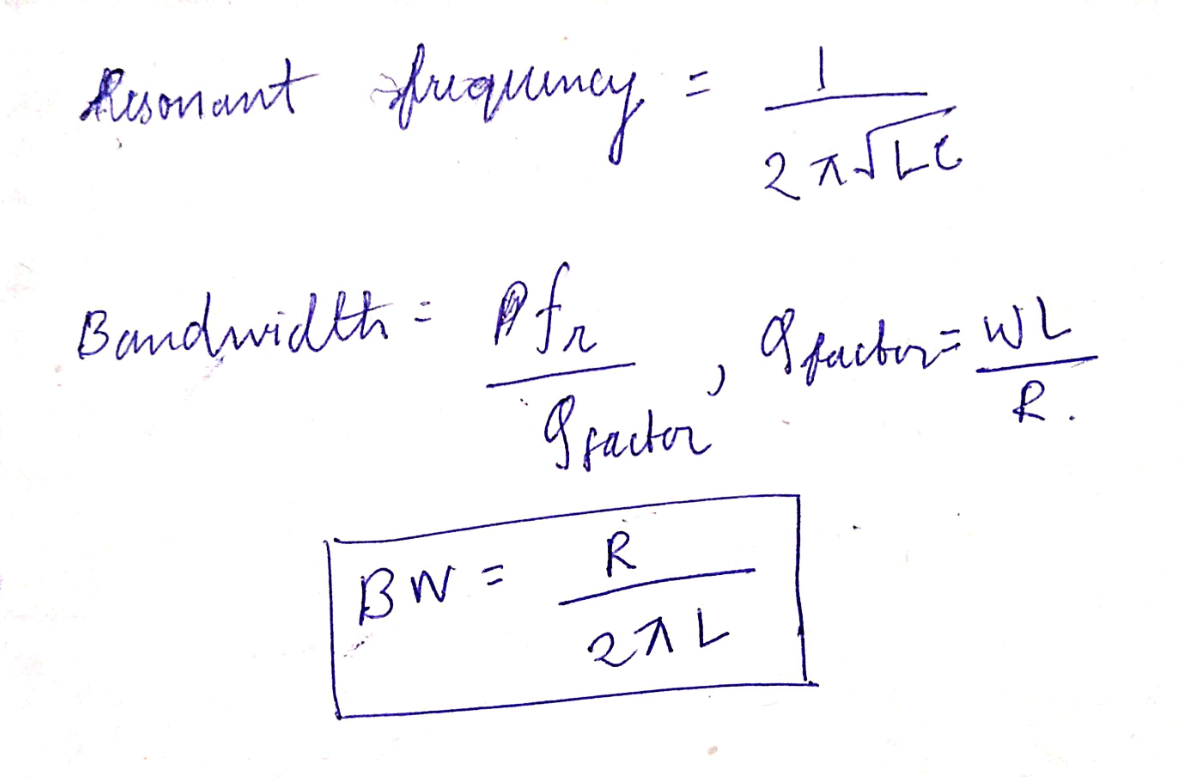 Resonant frequency = 1 / 2π√LC
Bandwidth = fr / Qfactor , Qfactor = WL / R.
BW = R / 2πL